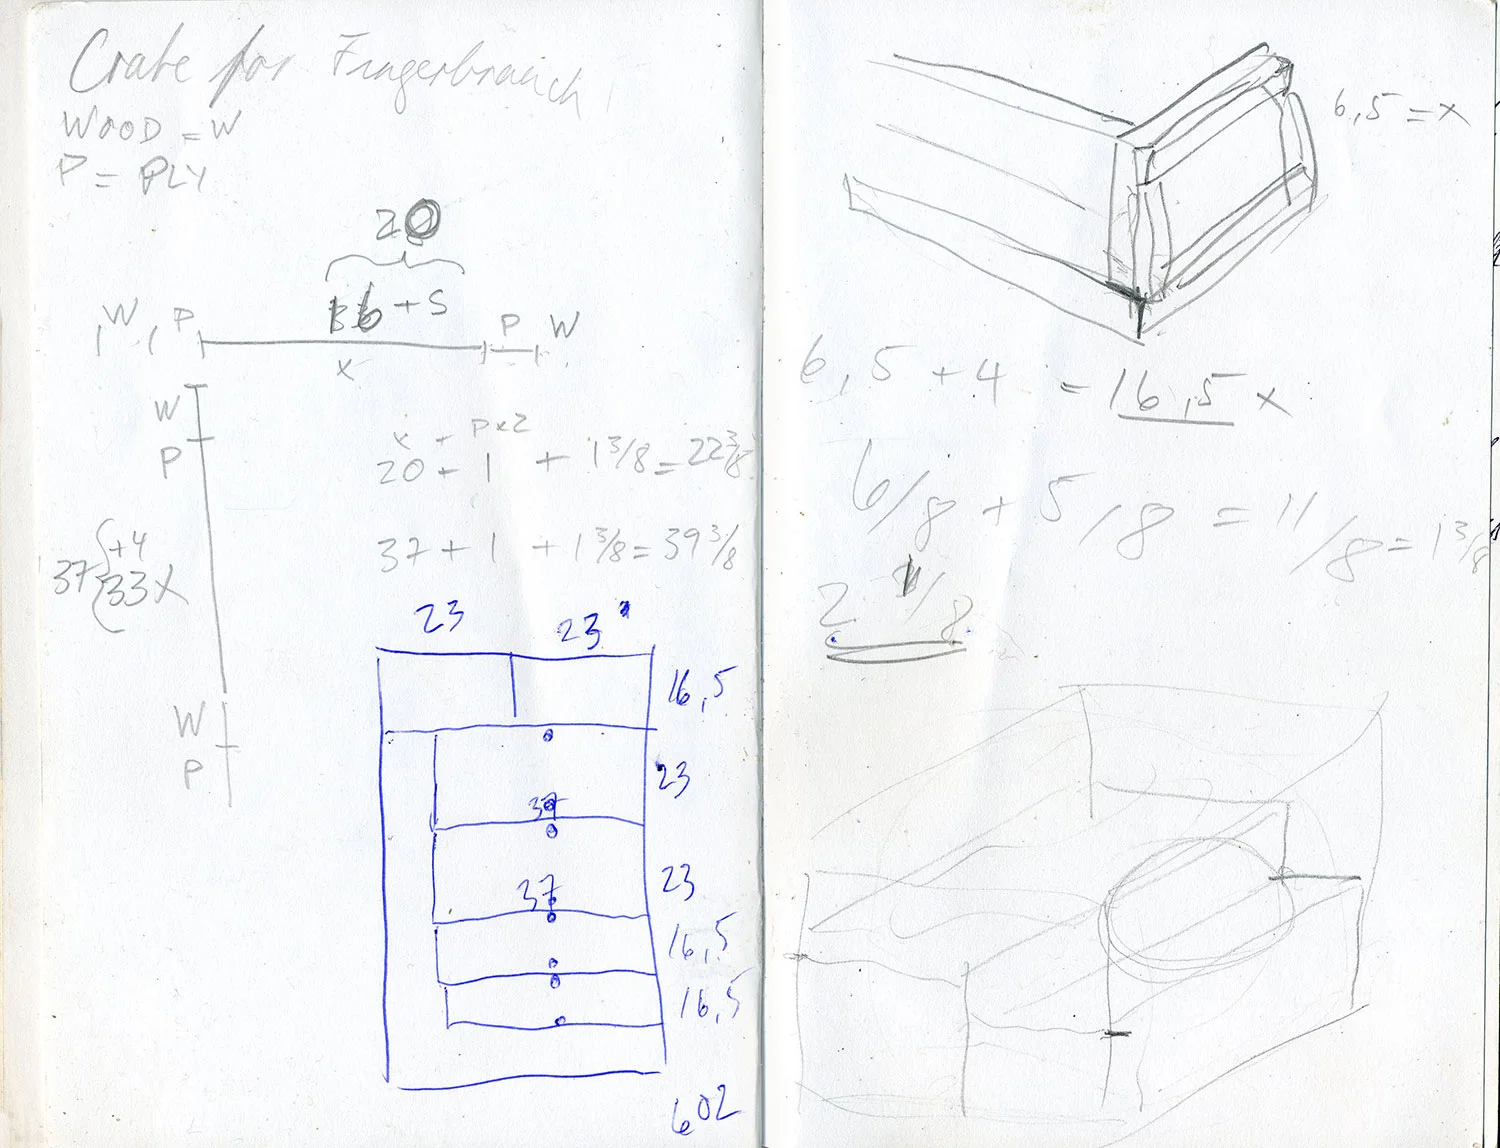 Crate for Fingerbranch
WOOD = W
P = PLY
20
16 + 5
W P
P W
x
W
P
x + P x 2
20 + 1 + 1 3/8 = 22 3/8
37 + 1 + 1 3/8 = 39 3/8
37 { +4
33 x
W
P
23 23"
16,5
23
37
23
37
16,5
16,5
602
6,5 = x
6,5 + 4 = 16,5 x
6/8 + 5/8 = 11/8 = 1 3/8